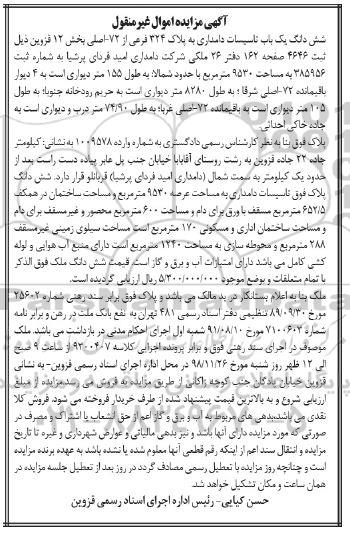 آگهی مزایده اموال غیرمنقول
شش دانگ یک باب تاسیسات دامداری به پلاک ۳۲۴ فرعی از ۷۲-اصلی بخش ۱۲ قزوین ذیل
ثبت ۴۶۴۶ صفحه ۱۶۲ دفتر ۲۶ ملکی شرکت دامداری امید فردای پرشیا به شماره ثبت
۳۸۵۹۵۶ به مساحت ۹۵۳۰ مترمربع با حدود شمالا: به طول ۱۵۵ متر دیواری است به ۴ دیوار
باقیمانده ۷۲-اصلی شرقا؛ به طول ۸۲۸۰ متر دیواری است به حریم رودخانه جنوبا؛ به طول
۱۰۵ متر دیواری است به باقیمانده ۷۲-اصلی غربا؛ به طول ۷۴/۹۰ متر درب و دیواری است به
جاده خاکی احداثی.
پلاک فوق بنا به نظر کارشناس رسمی دادگستری به شماره وارده ۱۰۰۹۵۷۸ به نشانی: کیلومتر
جاده ۲۲ جاده قزوین به رشت روستای آقابابا خیابان جنب پل عابر پیاده دست راست بعد از
حدود یک کیلومتر به سمت شمال (دامداری امید فردای پرشیا) قربانلو قرار دارد. شش دانگ
پلاک فوق تاسیسات دامداری به مساحت عرصه ۹۵۳۰ مترمربع و مساحت ساختمان در همکف
۶۵۲/۵ مترمربع مسقف با ورق برای دام و مساحت ۶۰۰ مترمربع محصور و غیرمسقف برای دام
و مساحت ساختمان اداری و مسکونی ۱۷۰ مترمربع است مساحت سیلوی زمینی غیرمسقف
۲۸۸ مترمربع و محوطه سازی به مساحت ۱۲۴۰ مترمربع است دارای منبع آب هوایی و لوله
کشی کامل می باشد دارای امتیازات آب و برق و گاز است. قیمت شش دانگ ملک فوق الذکر
با تمام متعلقات و بوضع موجود ۵/۳۰۰/۰۰۰/۰۰۰ ریال ارزیابی گردیده است.
ملک بنا به اعلام بستانکار در ید مالک می باشد و پلاک فوق برابر سند رهنی شماره ۲۵۶۰۲
مورخ ۸۹/۰۹/۳۰ تنظیمی دفتر اسناد رسمی ۴۸۱ تهران به نفع بانک ملت در رهن و برابر نامه
شماره ۷۱۰۰۶۰۳ مورخ ۹۱/۰۸/۱۰ شعبه اول اجرای احکام مدنی در بازداشت می باشد. ملک
موصوف در اجرای سند رهنی فوق و برابر پرونده اجرایی کلاسه ۹۳۰۰۴۰۷ از ساعت ۹ صبح
الی ۱۲ ظهر روز شنبه مورخ ۹۸/۱۱/۲۶ در محل اداره اجرای اسناد رسمی قزوین- به نشانی
قزوین خیابان پادگان جنب کوچه ژاکاس از طریق مزایده به فروش می رسد مزایده از مبلغ
ارزیابی شروع و به بالاترین قیمت پیشنهاد شده از طرف خریدار فروخته می شود. فروش کلا
نقدی می باشد. بدهی های مربوط به آب و برق و گاز اعم از حق انشعاب یا اشتراک و مصرف در
صورتی که مورد مزایده دارای آنها باشد و نیز بدهی مالیاتی و عوارض شهرداری و غیره تا تاریخ
مزایده و انتقال سند اعم از اینکه رقم قطعی آنها معلوم شده یا نشده باشد به عهده برنده مزایده
است و چنانچه روز مزایده با تعطیل رسمی مصادف گردد در روز بعد از تعطیل جلسه مزایده در
همان ساعت و مکان تشکیل خواهد شد.
حسن کیایی- رئیس اداره اجرای اسناد رسمی قزوین